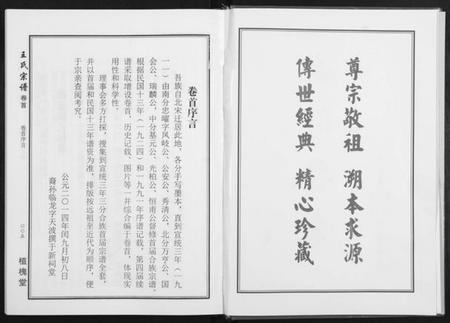 尊宗敬祖 溯本求源
傳世經典 精心珍藏
卷首序言
吾族自北宋迁居此地，各分手写墨本，直到宣统三年（一九
一一）由南分忠曜字凤岐公、公安公、秀清公，北分万亨公、国
会公、瑞麟公，中分基元公、光柏公、恒南公督修首届合族宗谱。
根据民国十三年（一九二四）和一九九一年序谱记载，第四届续
谱采取增设卷首，历史记载、图片等一并综合编于卷首，体现实
用性和科学性。
理事会多方打探，搜集到宣统三年三分合族首届宗谱全套，
并以首届和民国十三年谱资为准，排版按远祖至近代为顺序，便
于宗亲查阅考究。
公元二〇一四年闰九月初八日
裔孙临龙字天波撰于新祠堂
王氏宗谱 卷首
卷首序言
植槐堂